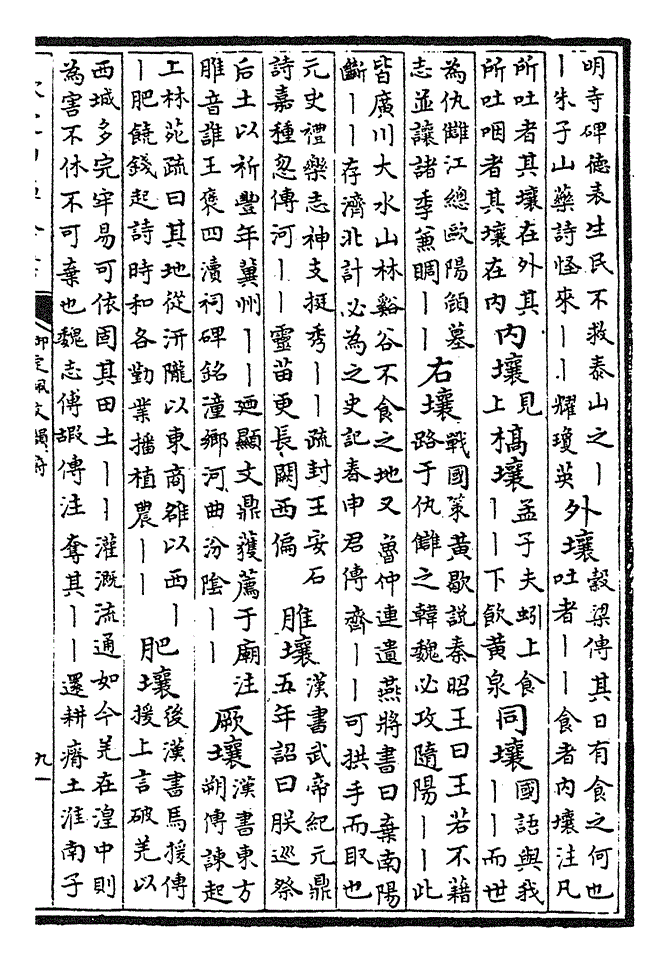 明寺碑德表生民不救泰山之丨
丨朱子山藥詩怪來丨丨耀瓊英
外壤
榖梁傳其日有食之何也
吐者丨丨食者内壤注凡
所吐者其壤在外其
所吐咽者其壤在内
内壤
見
上
槁壤
孟子夫蚓上食
丨丨下飲黄泉
同壤
國語與我
丨丨而世
為仇讎江總歐陽頠墓
志並讓諸季蒹賙丨丨
右壤
戰國策黄歇説秦昭王曰王若不藉
路于仇讎之韓魏必攻隨陽丨丨此
皆廣川大水山林谿谷不食之地又魯仲連遺燕將書曰棄南陽
斷丨丨存濟北計必為之史記春申君傳齊丨丨可拱手而取也
元史禮樂志神支挺秀丨丨疏封王安石
詩嘉種忽傳河丨丨靈苗更長闕西偏
脽壤
漢書武帝紀元鼎
五年詔曰朕巡祭
后土以祈豐年冀州丨丨廼顯文鼎獲薦于廟注
脽音誰王褒四瀆祠碑銘潼鄉河曲汾陰丨丨
厥壤
漢書東方
朔傳諫起
上林苑疏曰其地從汧隴以東商雒以西丨
丨肥饒錢起詩時和各勤業播植農丨丨
肥壤
後漢書馬援傳
援上言破羌以
西城多完牢易可依固其田土丨丨灌溉流通如今羌在湟中則
為害不休不可棄也魏志傅嘏傳注奪其丨丨還耕瘠土淮南子
御定佩文韻府
九一